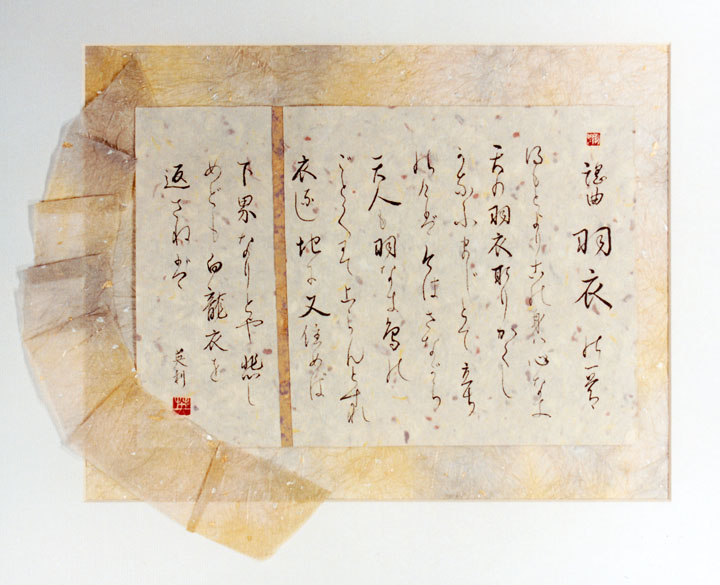 謡曲 羽衣 の一節
もとよりこの身は心なき
天の羽衣取りかくし
かなふまじとて立ち
のけば今はさながら
天人も羽なき鳥の
ごとくにて上らんとすれば
衣なし地に又住めば
下界なりとや悲し
めども白龍衣を
返さねば
英利